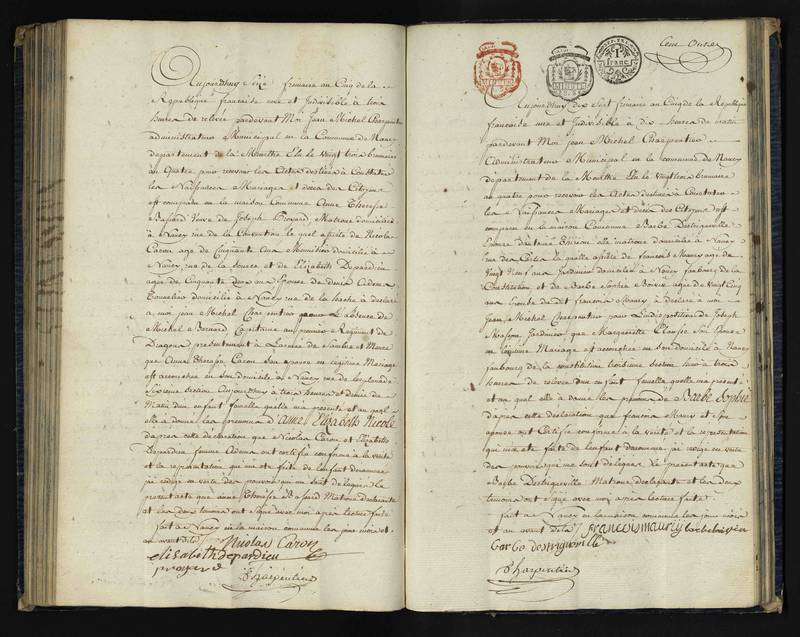 Aujourdhuy Seize frimaire au Cinq de la
Republique francaise une et Indivisible à trois
heures de relevée pardevant Moi Jean Michel Charpentier
administrateur Municipal en la Commune de Nancy
departement de la Meurthe Elu le Vingt trois brumaire
au Quatre pour recevoir les Actes destinés à Constater
les Naissances Mariages et deces des Citoyens
est comparue en la maison Commune Anne Therese
Bassard Veuve de Joseph Provard, Matrone domiciliée
à Nancy rue de la Convention lequel assisté de Nicolas
Caron agé de Cinquante ans domicilié à
Nancy rue de la Source et de Elizabeth Depardieu
agée de Cinquante deux ans Epouse de
Tonnelier domiciliée à Nancy rue de la hache à declaré
a moi jean Michel Charpentier pour L'absence de
Michel Bernard Capitaine au premier Regiment de
Dragons presentement à Larmée de Sambre et Meuse
que Anne Therese Caron Son epouse en legitime Mariage
est accouchée en son domicile à Nancy rue de
Sixieme Section Aujourdhuy à trois heures et demie du
Matin d'un enfant femelle quelle me presente et auquel
elle a donné les prenoms d'Aimée Elizabeth Nicole
dapres cette declaration que Nicolas Caron et Elizabeth
Depardieu femme ont certifié conforme à la verité
et la representation qui ma eté faite de lenfant denommé
jai redigé en vertu des pouvoirs qui me sont delegués le
present acte que Anne Therese Bassard Matrone declarante
et les deux temoins ont signé avec moi apres lecture faite
fait à Nancy en la maison commune les jour mois et
an avant dits
Nicolas Caron
elisabeth depardieu
provard
Charpentier
1
franc
Cent Onze
Aujourdhuy dix Sept frimaire au Cinq de la Republique
francaise une et Indivisible à dix heures du matin
pardevant Moi jean Michel Charpentier
Administrateur Municipal en la commune de Nancy
departement de la Meurthe Elu le Vingt trois brumaire
au quatre pour recevoir les Actes destinés à Constater
les Naissances Mariages et deces des Citoyens est
comparue en la maison Commune Barbe Destrigneville
Epouse d'Antoine matrone domiciliée à Nancy
rue des laquelle assistée de francois Maury agé de
Vingt Neuf ans Jardinier domicilié à Nancy faubourg de la
Constitution et de Barbe Sophie agée de Vingt Cinq
ans femme dudit francois Maury à declaré a moi
Jean Michel Charpentier pour Lindisposition de Joseph
Jardinier que Marguerite Son Epouse
en legitime Mariage est accouchée en son domicile à Nancy
faubourg de la constitution troisieme section hier à trois
heures de relevée d'un enfant femelle quelle ma presenté
et auquel elle à donné les prenoms de Barbe Sophie
dapres cette declaration que francois Maury et Son
epouse ont Certifié conforme à la verité et la representation
qui ma eté faite de lenfant denommé jai redigé en vertu
des pouvoirs qui me sont delegués le present acte que
Barbe Destrigneville Matrone declarante et les deux
temoins ont signé avec moi apres lecture faite
fait à Nancy en la maison commune les jour mois
et an avant dits
francois maury
barbe destrigneville
Charpentier